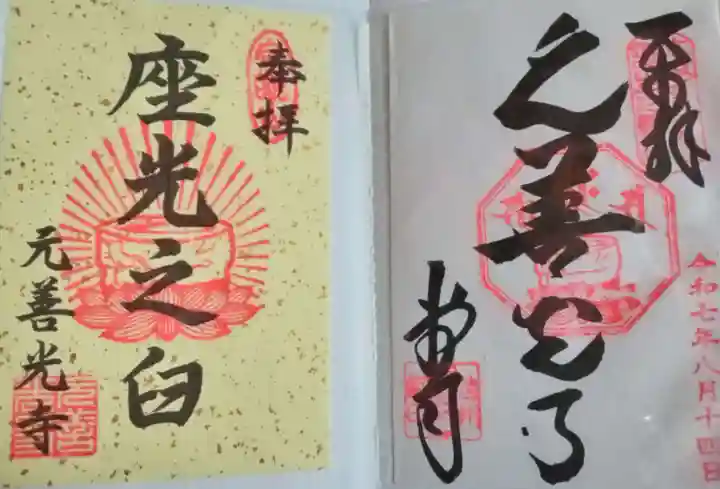 奉拝
座光之臼
元善光寺
奉拝
元善光寺
令和七年八月十四日